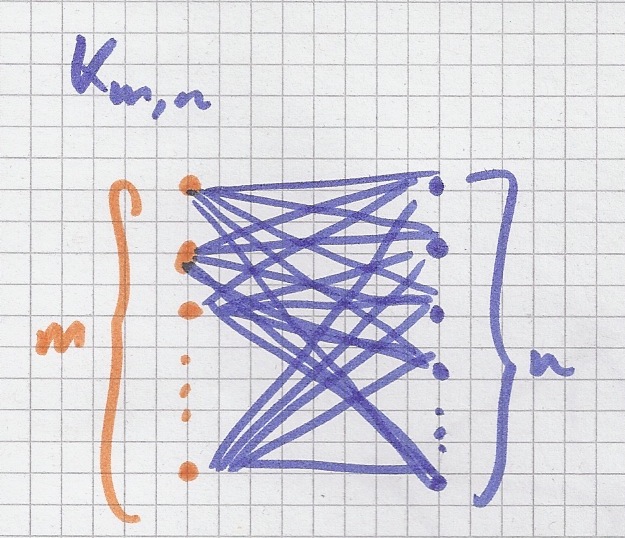 K_{m,n}
m
n